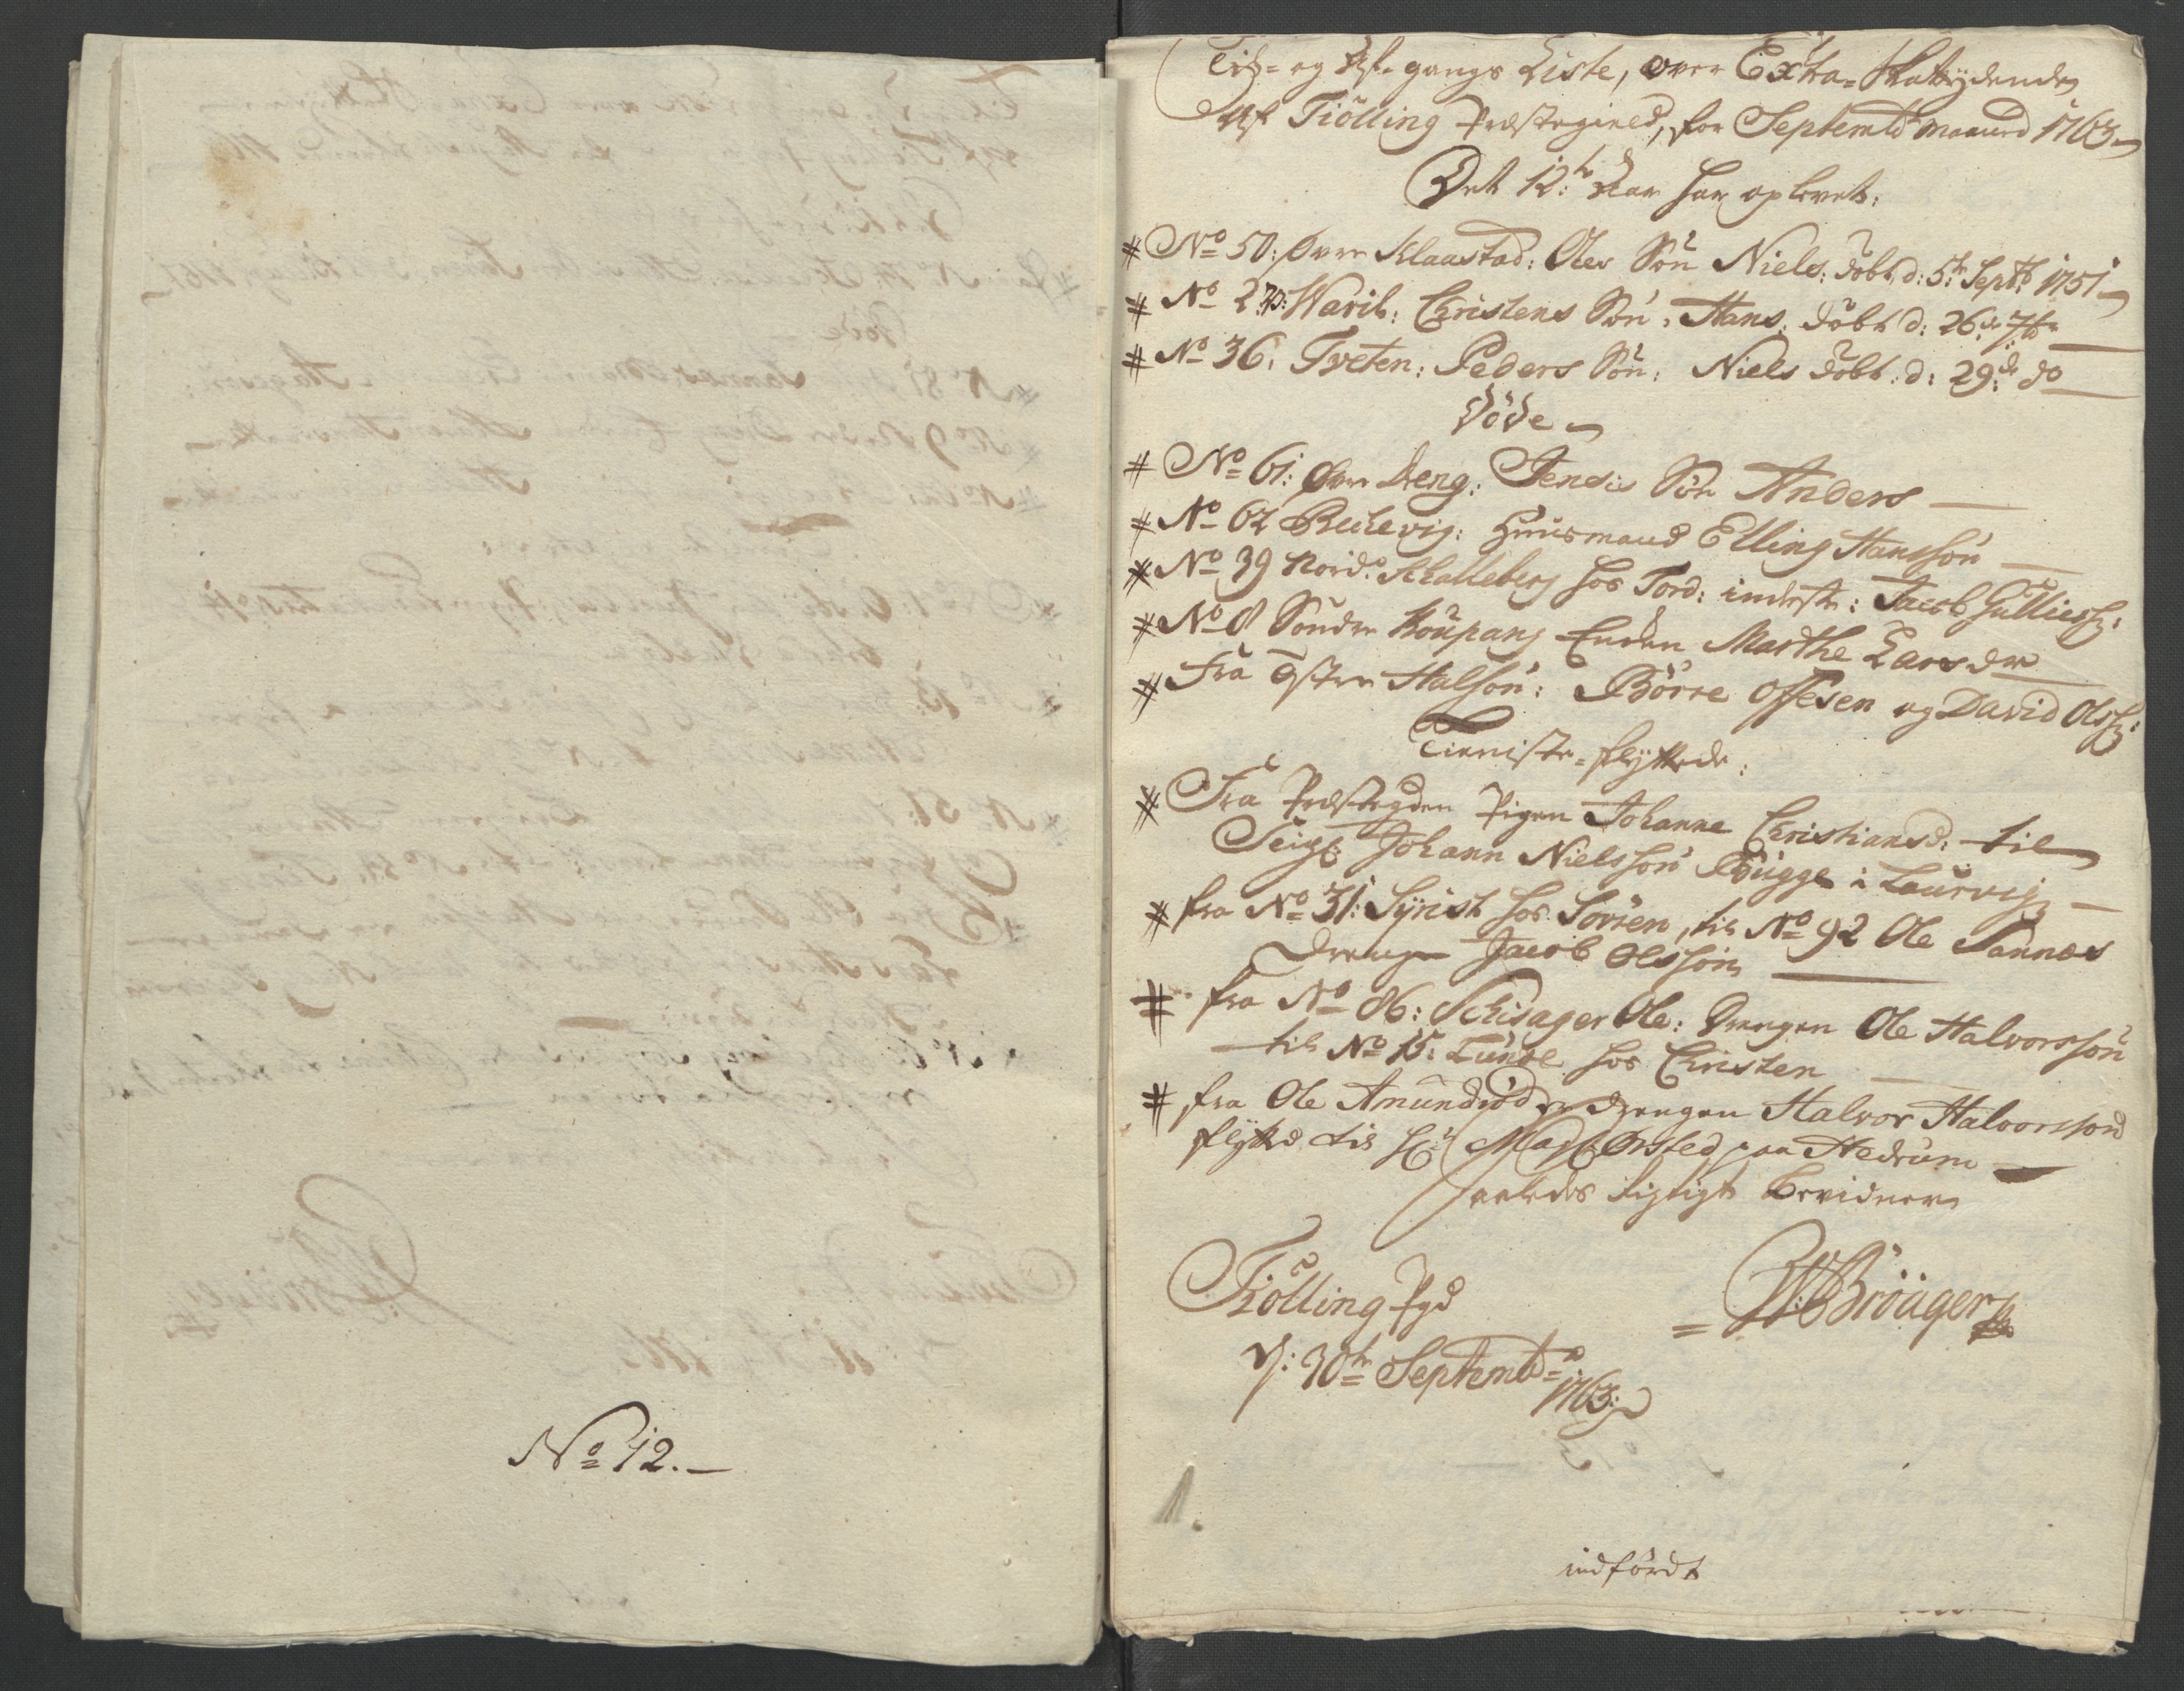 No 12.
Til- og Af-gangs Liste, over Extra-Skattydende
Af Tiölling Præstegield, for Septembr Maaned 1763
Det 12te Aar har oplevet:
# No 50: Øvre Klaastad: Oles Sön Niels: döbt d: 5te Septbr 1751
# No 27: Waril: Christens Sön, Hans: döbt d: 26de 7br
# No 36: Tveten: Peders Sön: Niels döbt: d: 29de do
Döde
# No 61: Øvre Reng: Jenses Sön Anders
# No 62 Rechevig: Huusmand Elling Hansön
# No 39 Nord: Skalleberg hos Tord: inderste: Jacob Gulliches:
# No 8 Söndre Kaupang Enken Marthe Larsdr
# Fra Østre Halsön: Börre Offesen og David Olss:
Tieniste-flyttede:
# Fra Præstegden Pigen Johanne Christiansd: til
Seigr Johann Nielssön Bugge i Laurvig
# fra No 31: Syrist hos Sören, til No 92 Ole Sannæs
Drengen Jacob Olssön
# fra No 86: Schisager Ole: Drengen Ole Halvorssön
til No 15: Lunde hos Christen
# fra Ole Amundröd Drengen Halvor Halvorssön
flytted til Hr Mag: Ørsted paa Hedrum
saaledes rigtigt bevidner
Tiölling Pgd
d: 30te Septembr 1763
W: Bröager
indfördt